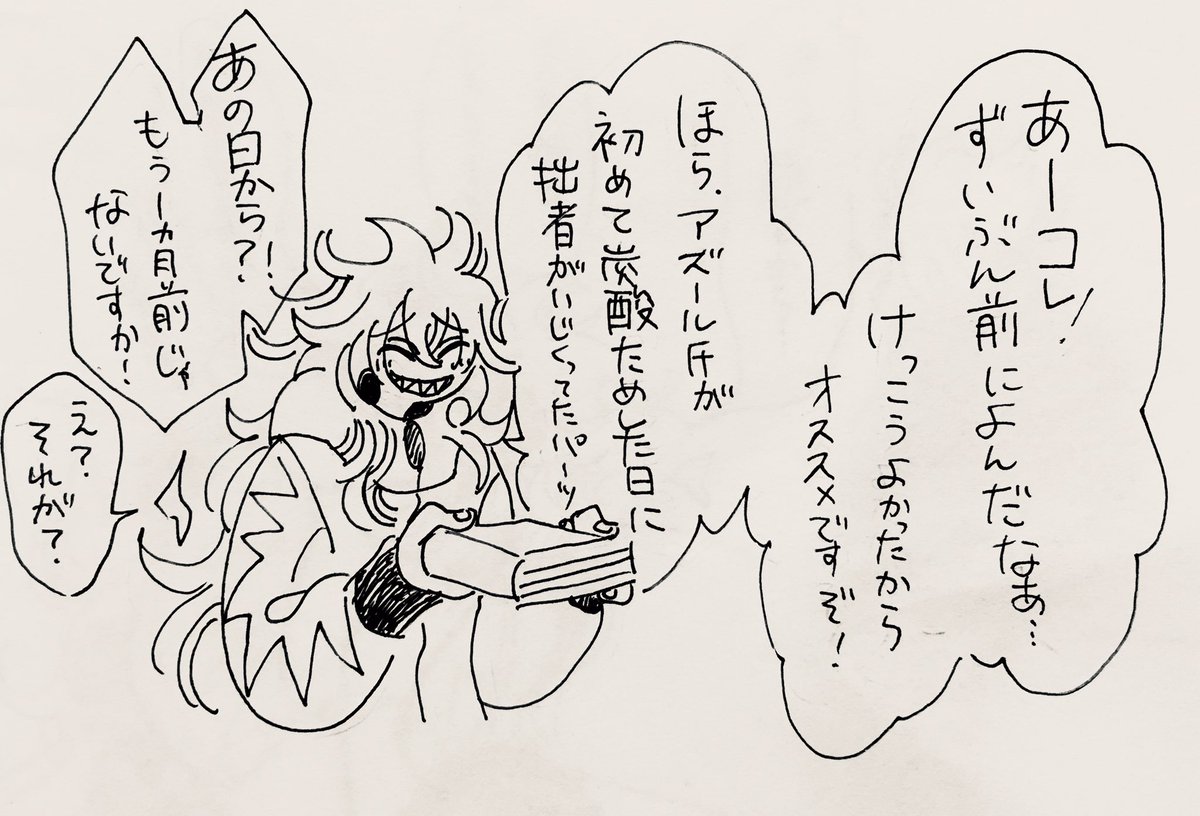 あーコレ!
ずいぶん前によんだなぁ…
けっこうよかったから
オススメですぞ!
ほら、アズール氏が
初めて炭酸ためした日に
拙者がいじくってたパーツ
あの日から?!
もう1ヵ月前じゃ
ないですか!
え?
それが?